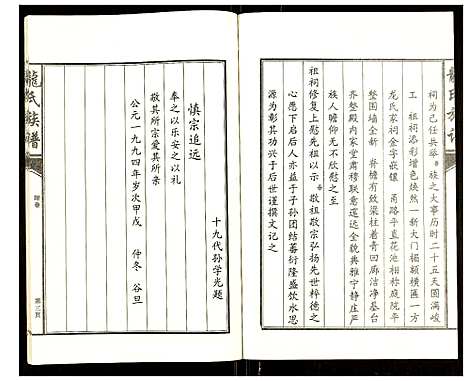 龍氏族譜
祠为己任共举。族之大事历时二十五天圆满峻
工 祖祠添彩增色焕然一新大门楹额横匾一方
龙氏家祠金字嵌镶 甬路平直花池相称庭院平
整围墙全新 并檐有效梁柱着青回廊洁净基台
齐整殿内家堂肃穆联意邃远全貌典雅宁静庄严
族人瞻仰无不欣慰之至
祖祠修复上慰先祖以示。敬祖敬宗弘扬先世粹德之
心愿下启后人亦益于子孙团结蕃衍隆盛饮水思
源为彰其功兴于后世谨撰文记之
十九代孙学光题
慎宗追远
奉之以乐安之以礼
敬其所宗爱其所亲
公元一九九四年岁次甲戌 仲冬 谷旦
龍氏族譜
第三页